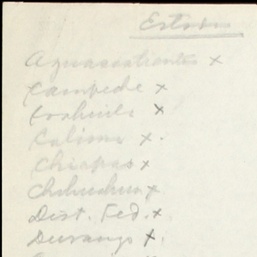 Estados
Aguascalientes x
Campeche x
Coahuila x
Colima x.
Chiapas x
Chihuahua x
Dist. Fed. x.
Durango x.